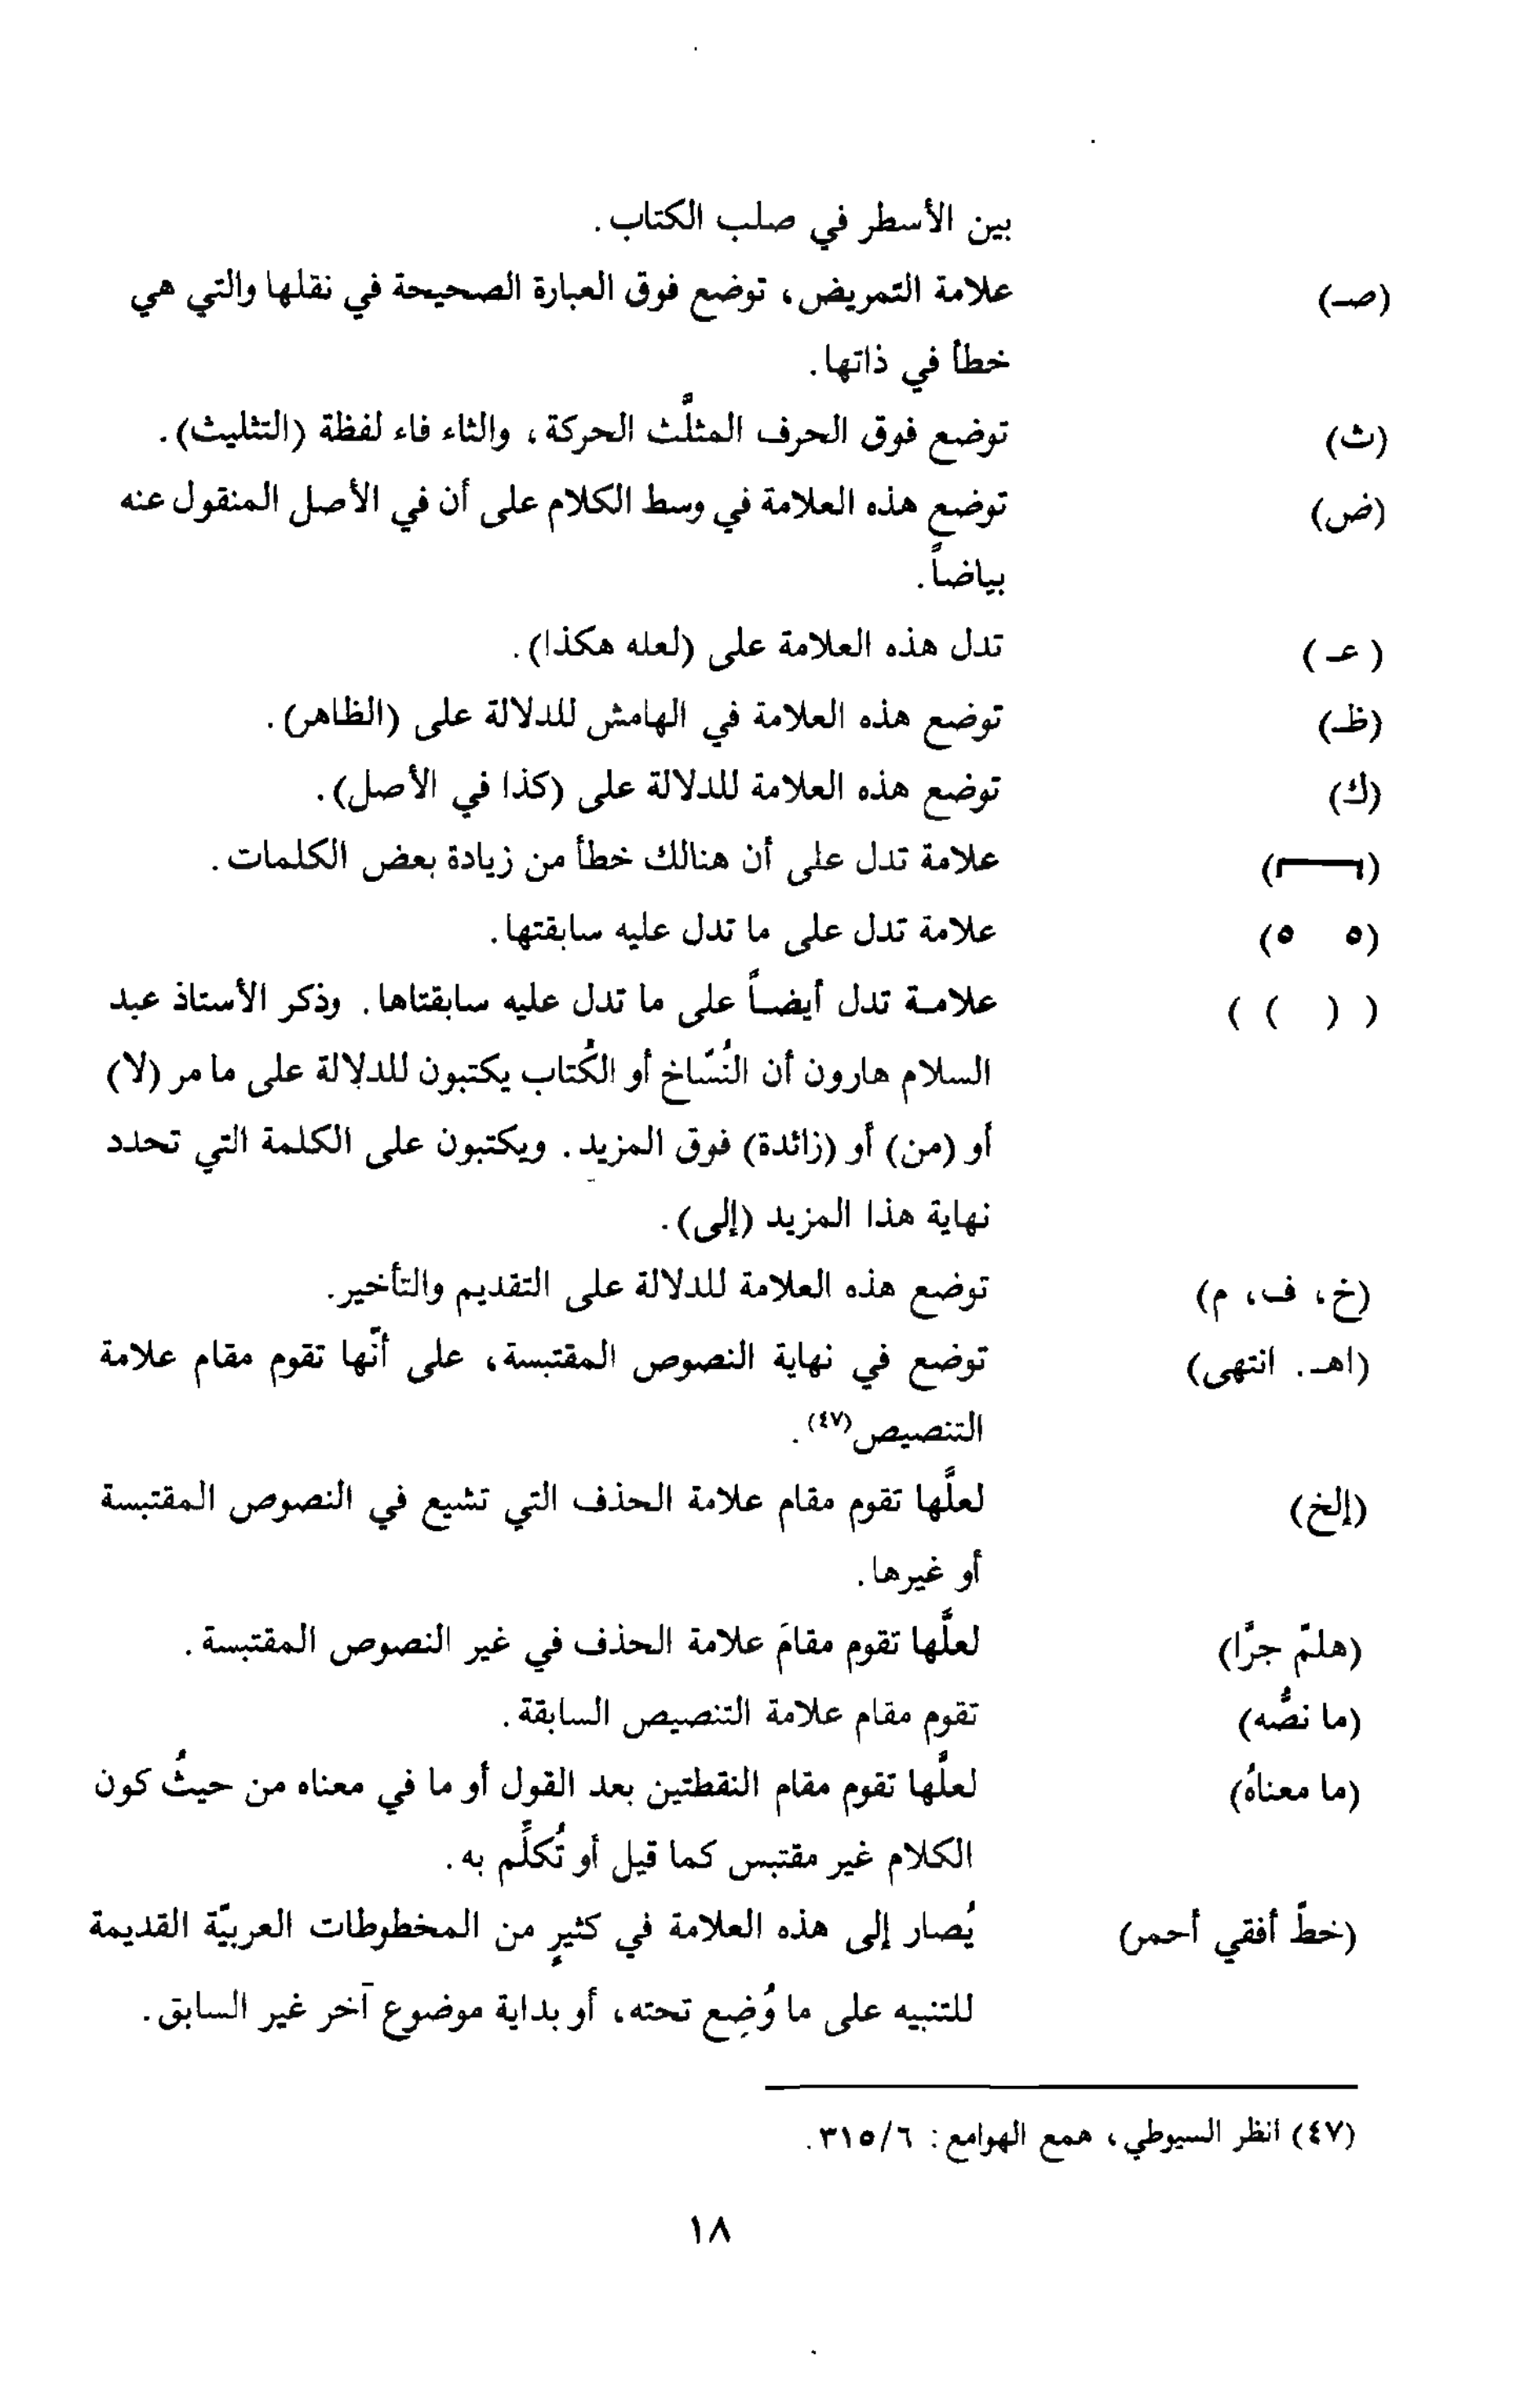 بين الأسطر في صلب الكتاب.
(صـ) علامة التمريض، توضع فوق العبارة الصحيحة في نقلها والتي هي
خطأ في ذاتها.
(ث) توضع فوق الحرف المثلَّث الحركة، والثاء فاء لفظة (التثليث).
(ض) توضع هذه العلامة في وسط الكلام على أن في الأصل المنقول عنه
بياضاً.
(عـ) تدل هذه العلامة على (لعله هكذا).
(ظـ) توضع هذه العلامة في الهامش للدلالة على (الظاهر).
(ك) توضع هذه العلامة للدلالة على (كذا في الأصل).
(┌──┐) علامة تدل على أن هنالك خطأ من زيادة بعض الكلمات.
(٥ ٥) علامة تدل على ما تدل عليه سابقتها.
( ( ) ) علامـة تدل أيضـاً على ما تدل عليه سابقتاها. وذكر الأستاذ عبد
السلام هارون أن النُسّاخ أو الكُتاب يكتبون للدلالة على ما مر (لا)
أو (من) أو (زائدة) فوق المزيد. ويكتبون على الكلمة التي تحدد
نهاية هذا المزيد (إلى).
(خ، ف، م) توضع هذه العلامة للدلالة على التقديم والتأخير.
(اهـ. انتهى) توضع في نهاية النصوص المقتبسة، على أنّها تقوم مقام علامة
التنصيص(٤٧).
(إلخ) لعلَّها تقوم مقام علامة الحذف التي تشيع في النصوص المقتبسة
أو غيرها.
(هلمّ جرَّا) لعلَّها تقوم مقامَ علامة الحذف في غير النصوص المقتبسة.
(ما نصُّه) تقوم مقام علامة التنصيص السابقة.
(ما معناهُ) لعلَّها تقوم مقام النقطتين بعد القول أو ما في معناه من حيثُ كون
الكلام غير مقتبس كما قيل أو تُكلِّم به.
(خطّ أفقي أحمر) يُصار إلى هذه العلامة في كثيرٍ من المخطوطات العربيّة القديمة
للتنبيه على ما وُضِع تحته، أو بداية موضوع آخر غير السابق.
(٤٧) انظر السيوطي، همع الهوامع: ٣١٥/٦.
١٨